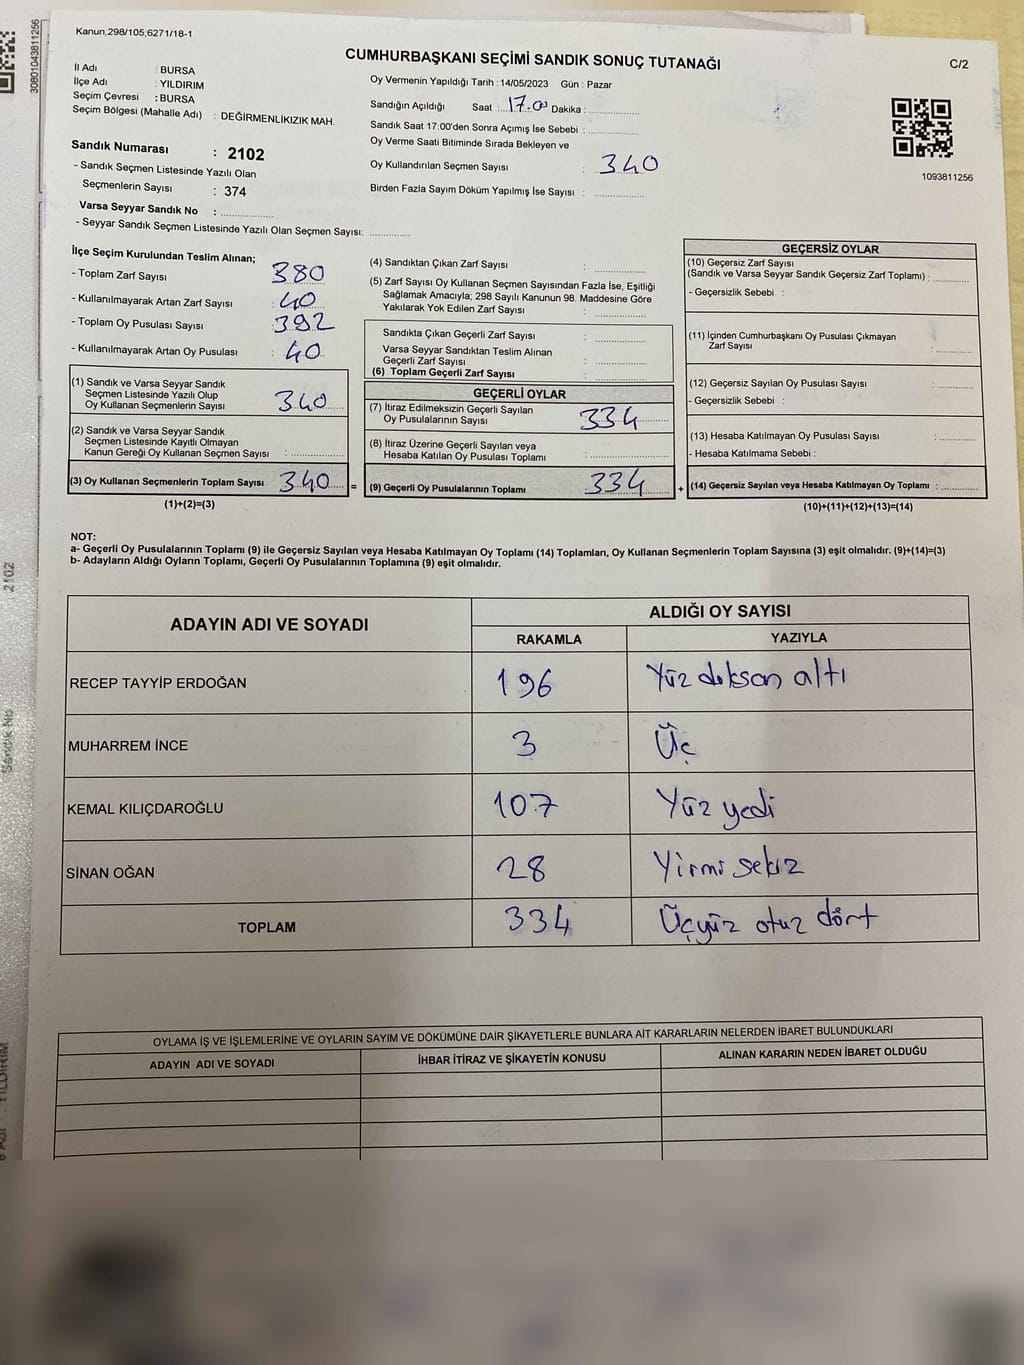 Kanun;298/105;6271/18-1
CUMHURBAŞKANI SEÇİMİ SANDIK SONUÇ TUTANAĞI
C/2
30801043811256
İl Adı : BURSA
İlçe Adı : YILDIRIM
Seçim Çevresi : BURSA
Seçim Bölgesi (Mahalle Adı) : DEĞİRMENLİKIZIK MAH.
Sandık Numarası : 2102
- Sandık Seçmen Listesinde Yazılı Olan
Seçmenlerin Sayısı : 374
Varsa Seyyar Sandık No : ................
- Seyyar Sandık Seçmen Listesinde Yazılı Olan Seçmen Sayısı: .............
Oy Vermenin Yapıldığı Tarih :14/05/2023 Gün : Pazar
Sandığın Açıldığı Saat : 17.00 Dakika : ................
Sandık Saat 17:00'den Sonra Açımış İse Sebebi : ................
Oy Verme Saati Bitiminde Sırada Bekleyen ve
Oy Kullandırılan Seçmen Sayısı : 340
Birden Fazla Sayım Döküm Yapılmış İse Sayısı : ................
1093811256
İlçe Seçim Kurulundan Teslim Alınan;
- Toplam Zarf Sayısı 380
- Kullanılmayarak Artan Zarf Sayısı : 40
- Toplam Oy Pusulası Sayısı 392
- Kullanılmayarak Artan Oy Pusulası : 40
(1) Sandık ve Varsa Seyyar Sandık
Seçmen Listesinde Yazılı Olup
Oy Kullanan Seçmenlerin Sayısı : 340
(2) Sandık ve Varsa Seyyar Sandık
Seçmen Listesinde Kayıtlı Olmayan
Kanun Gereği Oy Kullanan Seçmen Sayısı : ................
(3) Oy Kullanan Seçmenlerin Toplam Sayısı : 340 =
(1)+(2)=(3)
(4) Sandıktan Çıkan Zarf Sayısı : ................
(5) Zarf Sayısı Oy Kullanan Seçmen Sayısından Fazla İse, Eşitliği
Sağlamak Amacıyla; 298 Sayılı Kanunun 98. Maddesine Göre
Yakılarak Yok Edilen Zarf Sayısı : ................
Sandıkta Çıkan Geçerli Zarf Sayısı : ................
Varsa Seyyar Sandıktan Teslim Alınan
Geçerli Zarf Sayısı : ................
(6) Toplam Geçerli Zarf Sayısı : ................
GEÇERLİ OYLAR
(7) İtiraz Edilmeksizin Geçerli Sayılan
Oy Pusulalarının Sayısı : 334
(8) İtiraz Üzerine Geçerli Sayılan veya
Hesaba Katılan Oy Pusulası Toplamı : ................
(9) Geçerli Oy Pusulalarının Toplamı 334 +
GEÇERSİZ OYLAR
(10) Geçersiz Zarf Sayısı
(Sandık ve Varsa Seyyar Sandık Geçersiz Zarf Toplamı) : ............
- Geçersizlik Sebebi :
(11) İçinden Cumhurbaşkanı Oy Pusulası Çıkmayan
Zarf Sayısı : ............
(12) Geçersiz Sayılan Oy Pusulası Sayısı : ............
- Geçersizlik Sebebi :
(13) Hesaba Katılmayan Oy Pusulası Sayısı : ............
- Hesaba Katılmama Sebebi :
(14) Geçersiz Sayılan veya Hesaba Katılmayan Oy Toplamı : ............
(10)+(11)+(12)+(13)=(14)
NOT:
a- Geçerli Oy Pusulalarının Toplamı (9) ile Geçersiz Sayılan veya Hesaba Katılmayan Oy Toplamı (14) Toplamları, Oy Kullanan Seçmenlerin Toplam Sayısına (3) eşit olmalıdır. (9)+(14)=(3)
b- Adayların Aldığı Oyların Toplamı, Geçerli Oy Pusulalarının Toplamına (9) eşit olmalıdır.
2102
Sandık No
YILDIRIM
ADAYIN ADI VE SOYADI ALDIĞI OY SAYISI
RAKAMLA YAZIYLA
RECEP TAYYİP ERDOĞAN 196 Yüz doksan altı
MUHARREM İNCE 3 Üç
KEMAL KILIÇDAROĞLU 107 Yüz yedi
SİNAN OĞAN 28 Yirmi sekiz
TOPLAM 334 Üçyüz otuz dört
OYLAMA İŞ VE İŞLEMLERİNE VE OYLARIN SAYIM VE DÖKÜMÜNE DAİR ŞİKAYETLERLE BUNLARA AİT KARARLARIN NELERDEN İBARET BULUNDUKLARI
ADAYIN ADI VE SOYADI İHBAR İTİRAZ VE ŞİKAYETİN KONUSU ALINAN KARARIN NEDEN İBARET OLDUĞU